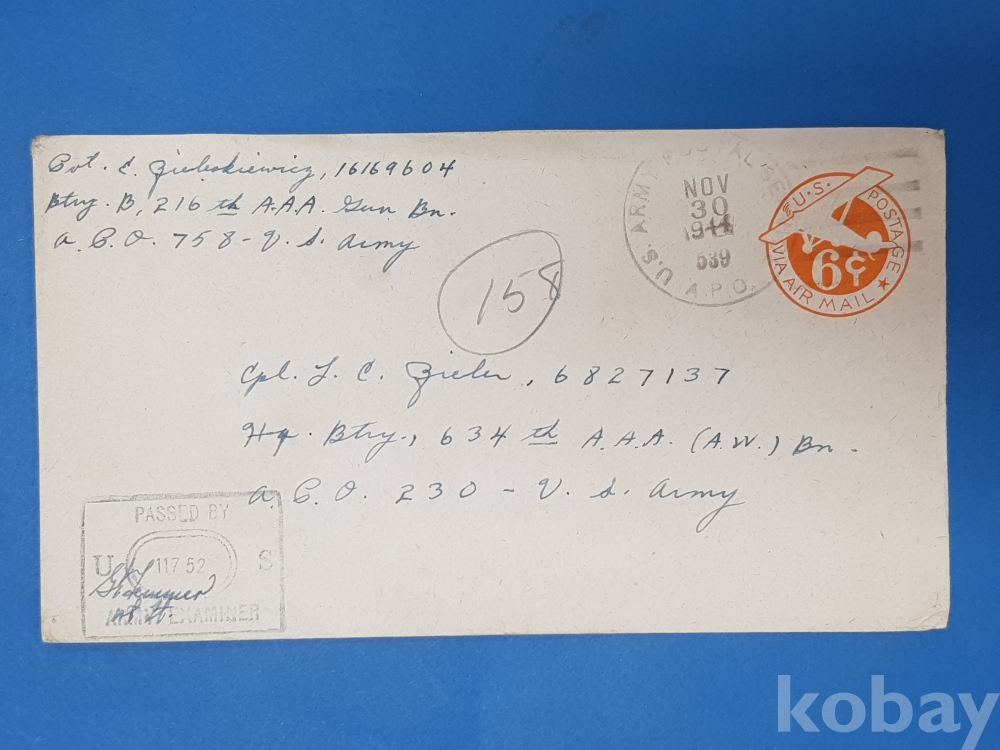 Pvt. C. Zieleskiewicz, 16169604
Btry. B, 216 th A.A.A. Gun Bn.
A.P.O. 758 - U.S. Army
U.S. ARMY POSTAL
NOV
30
1944
539
A.P.O.
U.S. POSTAGE
6¢
VIA AIR MAIL
158
Cpl. L. C. Zieler, 6827137
Hq. Btry., 634 th A.A.A. (A.W.) Bn.
A.P.O. 230 - U.S. Army
PASSED BY
U S
11752
ARMY EXAMINER
kobay